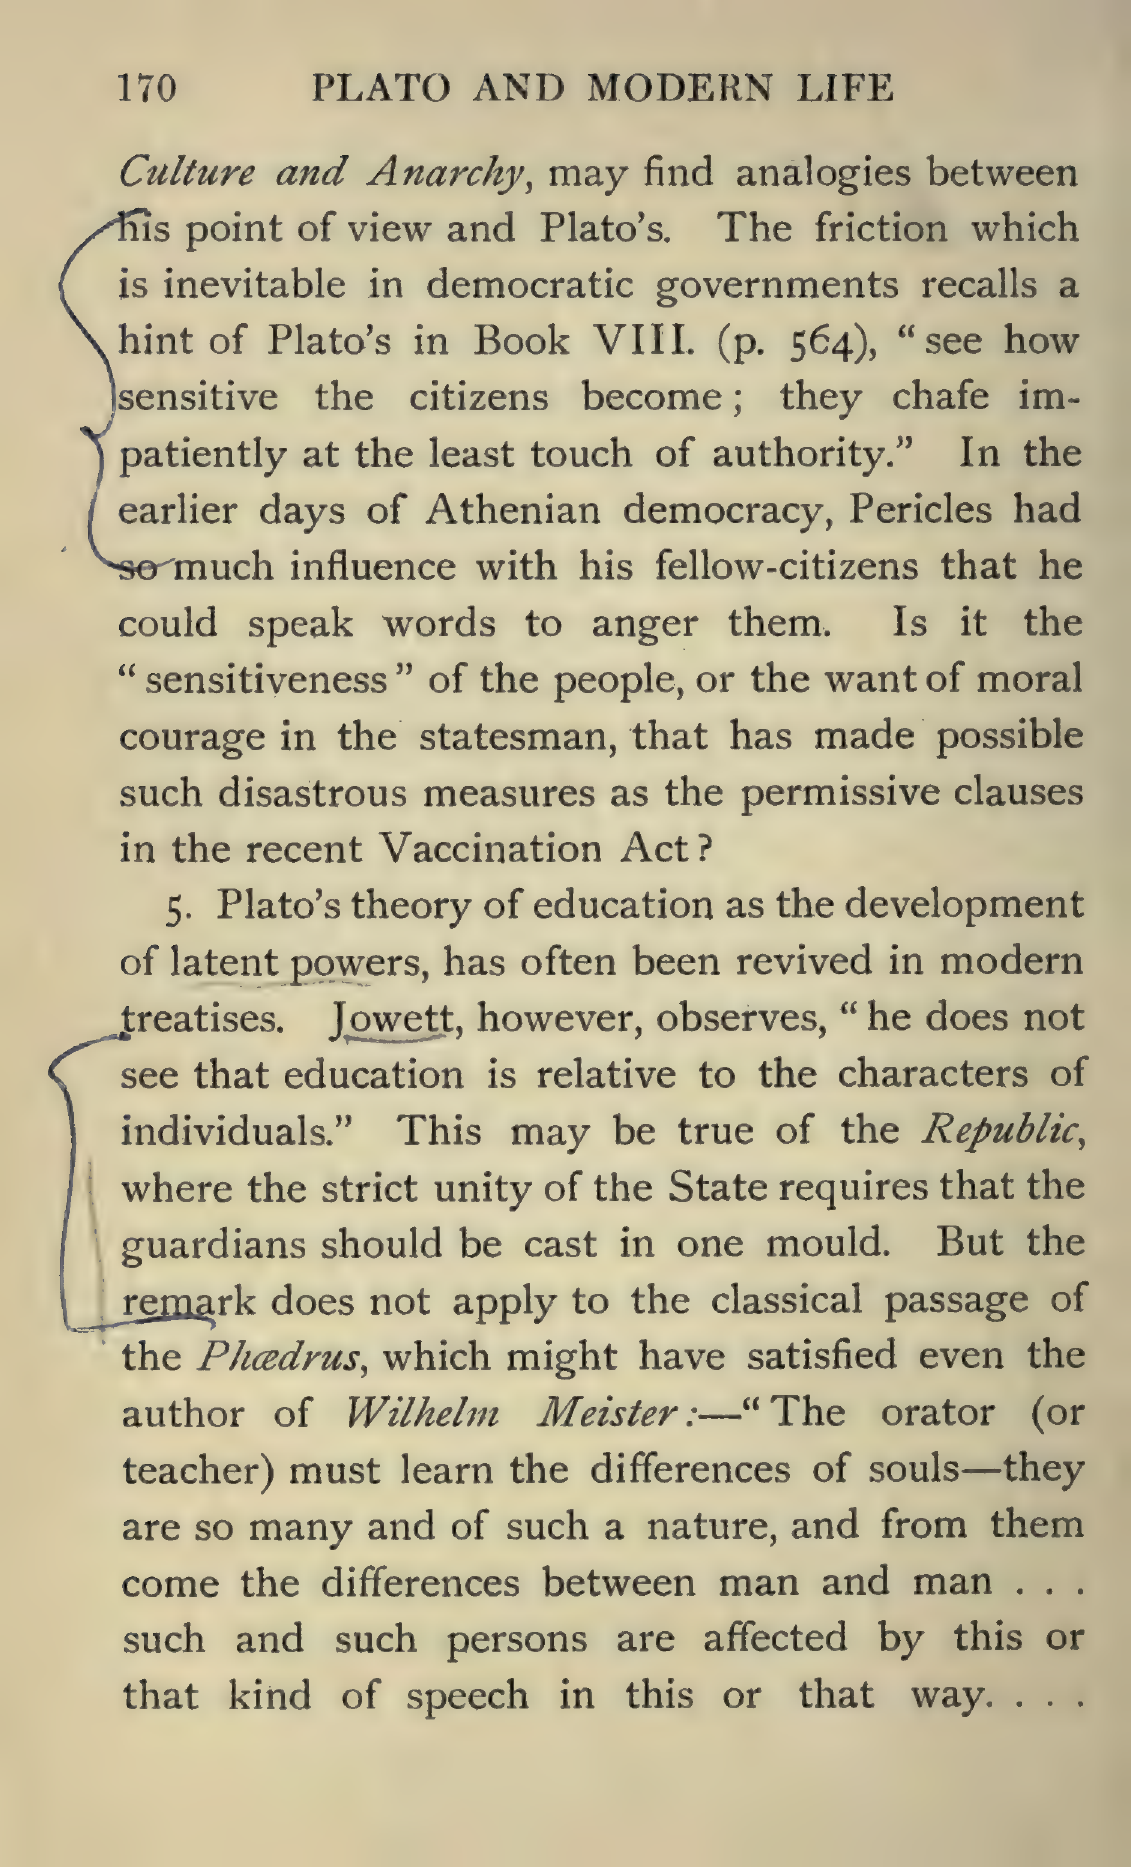 170 PLATO AND MODERN LIFE
Culture and Anarchy, may find analogies between
his point of view and Plato's. The friction which
is inevitable in democratic governments recalls a
hint of Plato's in Book VIII. (p. 564), “see how
sensitive the citizens become; they chafe im-
patiently at the least touch of authority.” In the
earlier days of Athenian democracy, Pericles had
so much influence with his fellow-citizens that he
could speak words to anger them. Is it the
“sensitiveness” of the people, or the want of moral
courage in the statesman, that has made possible
such disastrous measures as the permissive clauses
in the recent Vaccination Act?
5. Plato's theory of education as the development
of latent powers, has often been revived in modern
treatises. Jowett, however, observes, “he does not
see that education is relative to the characters of
individuals.” This may be true of the Republic,
where the strict unity of the State requires that the
guardians should be cast in one mould. But the
remark does not apply to the classical passage of
the Phædrus, which might have satisfied even the
author of Wilhelm Meister:—“The orator (or
teacher) must learn the differences of souls—they
are so many and of such a nature, and from them
come the differences between man and man . . .
such and such persons are affected by this or
that kind of speech in this or that way. . . .